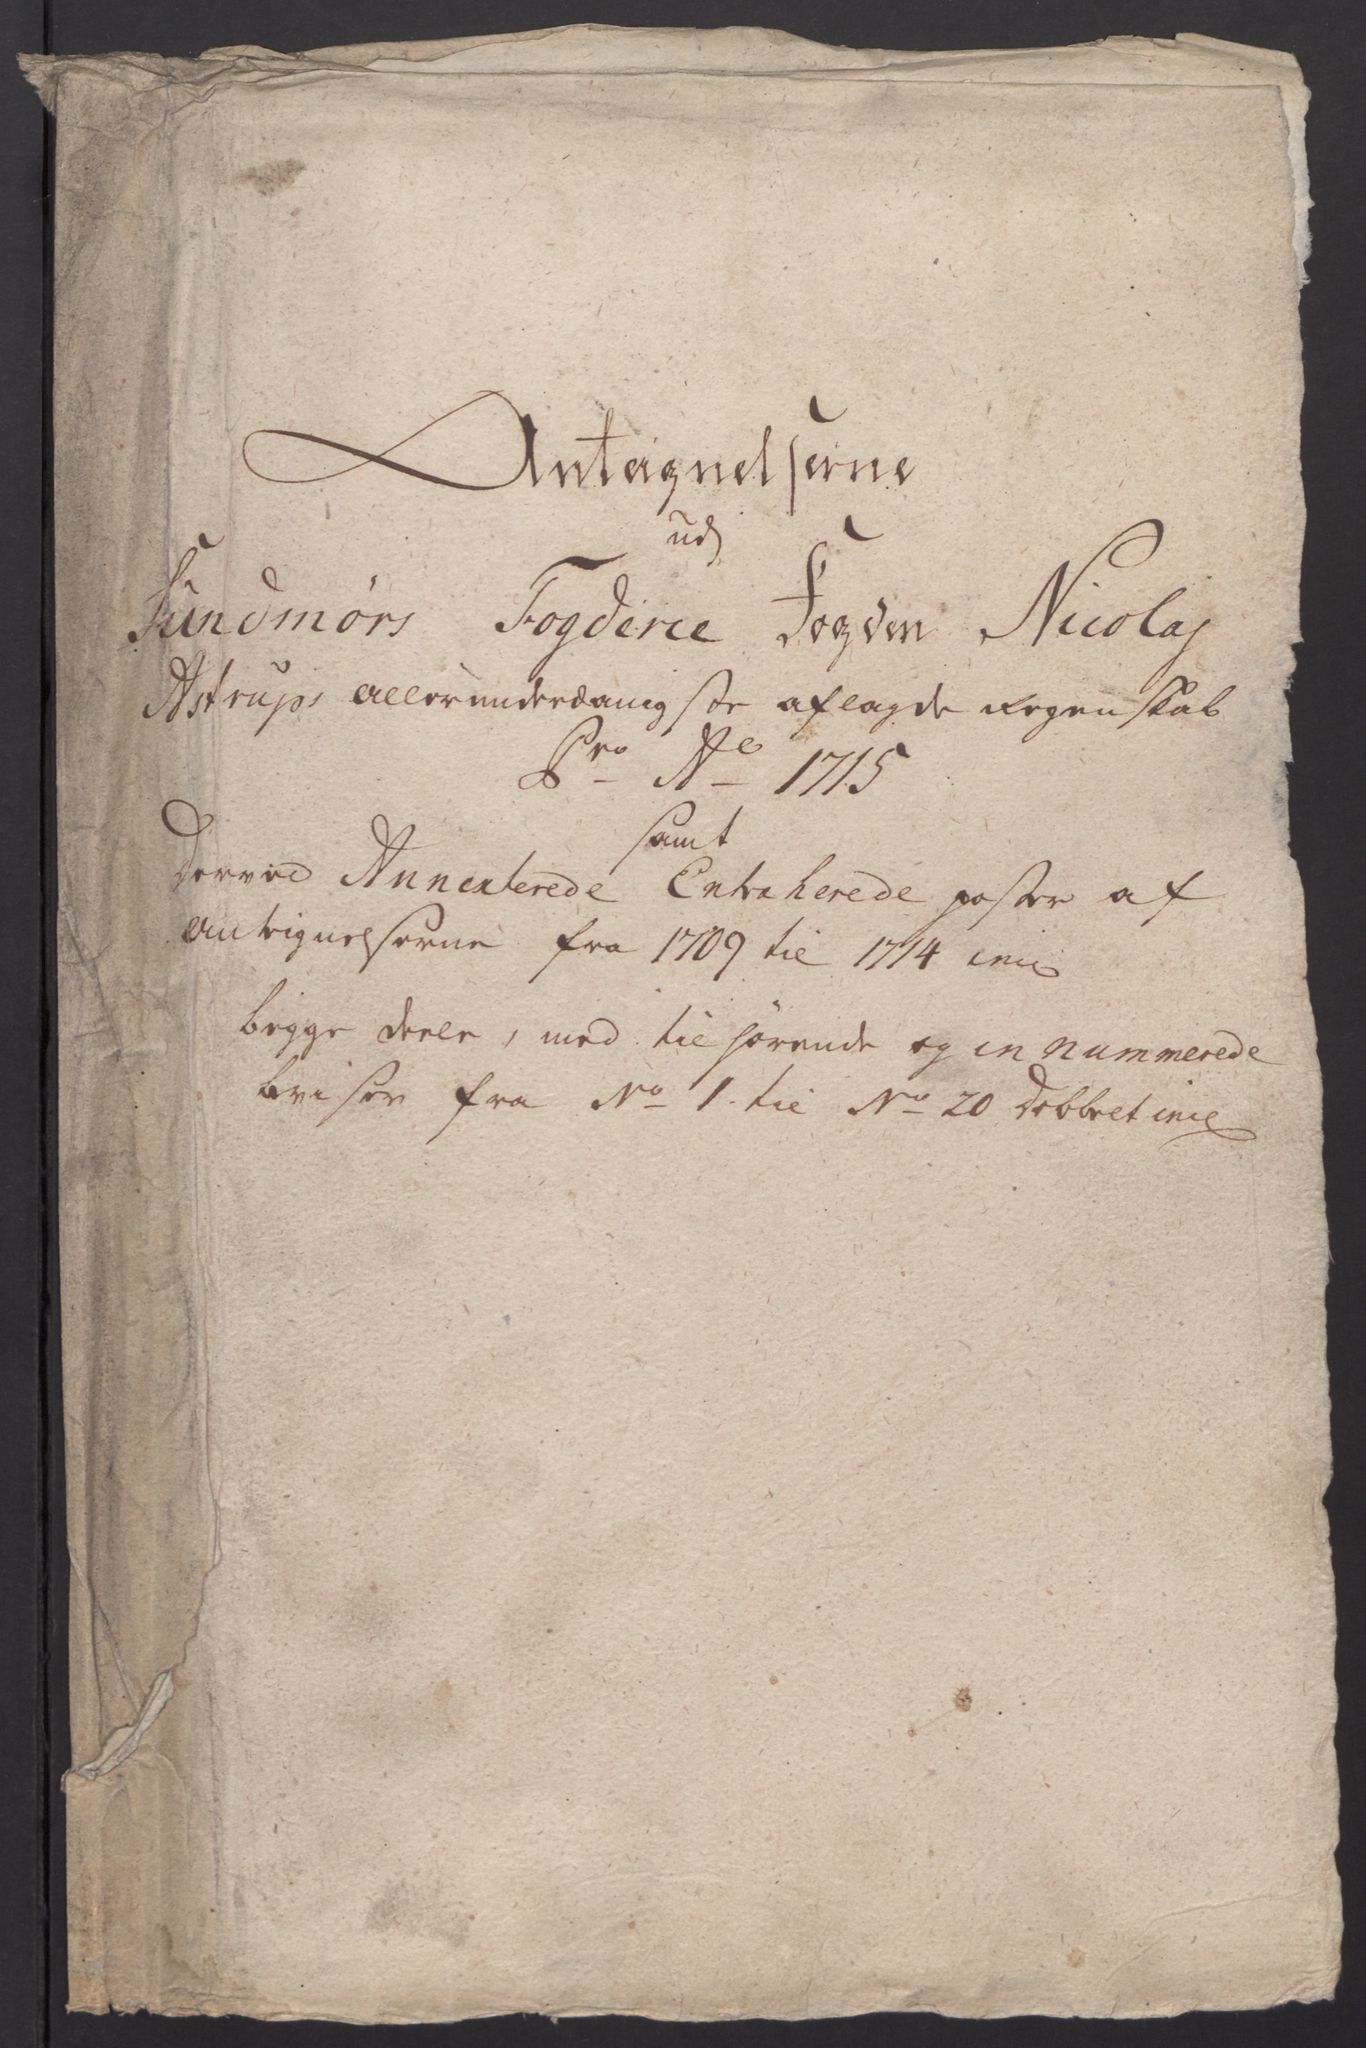 Anteignelserne
ud j
Sundmørs Fogderie Fogden Nicolaj
Astrups allerunderdanigste aflagde Regenskab
Pro Ao 1715
samt
Derved Annecterede Extraherede poster af
anteignelserne fra 1709 til 1714 incl
begge deele, med tilhørende og innummerede
beviser fra No 1 til No 20 dobbelt incl